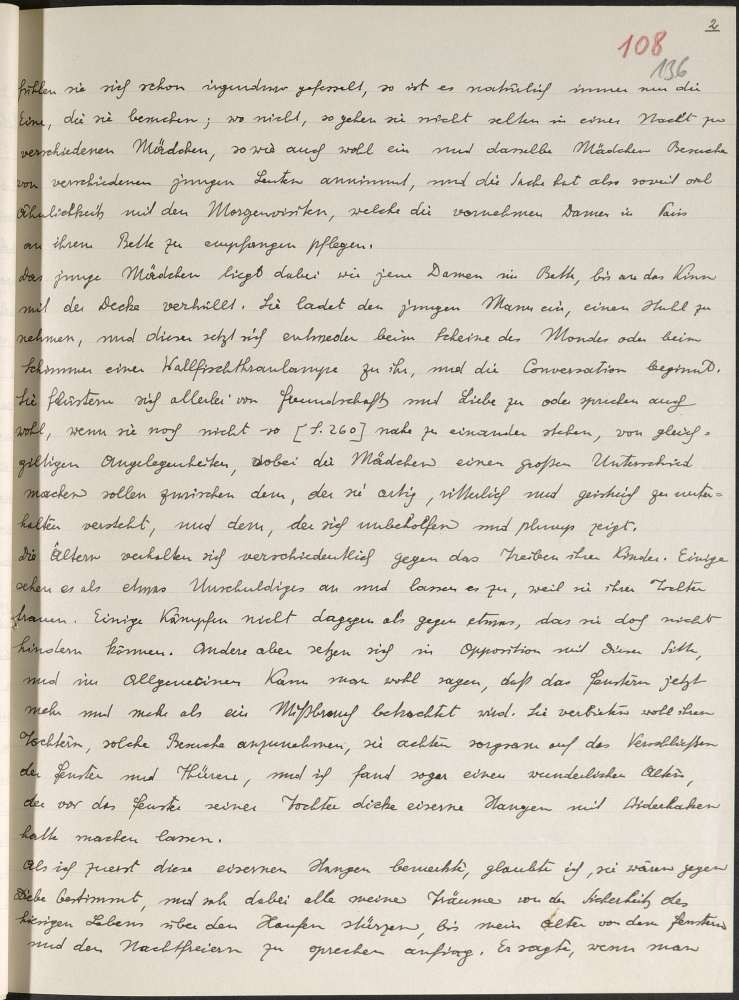 2
108
136
fühlen sie sich schon irgendwo gefesselt, so ist es natürlich immer nur die
Eine, die sie besuchen; wo nicht, so gehen sie nicht selten in einer Nacht zu
verschiedenen Mädchen, sowie auch wohl ein und dasselbe Mädchen Besuche
von verschiedenen jungen Leuten annimmt, und die Sache hat also soviel
Ähnlichkeit mit den Morgenvisiten, welche die vornehmen Damen in Paris
an ihrem Bette zu empfangen pflegen.
Das junge Mädchen liegt dabei wie jene Damen im Bett, bis an das Kinn
mit der Decke verhüllt. Sie ladet den jungen Mann ein, einen Stuhl zu
nehmen, und dieser setzt sich entweder beim Scheine des Mondes oder beim
Schimmer einer Wallfischthranlampe zu ihr, und die Conversation beginnt.
Sie flüstern sich allerlei von Freundschaft und Liebe zu oder sprechen auch
wohl, wenn sie noch nicht so [S.260] nahe zu einander stehen, von gleich=
giltigen Angelegenheiten, wobei die Mädchen einen großen Unterschied
machen sollen zwischen dem, der sie artig, ritterlich und geistreich zu unter=
halten versteht, und dem, der sich unbeholfen und plump zeigt.
Die Ältern verhalten sich verschiedentlich gegen das Treiben ihrer Kinder. Einige
sehen es als etwas Unschuldiges an und lassen es zu, weil sie ihrer Tochter
trauen. Einige kämpfen nicht dagegen als gegen etwas, das sie doch nicht
hindern können. Andere aber setzen sich in Opposition mit dieser Sitte,
und im Allgemeinen kann man wohl sagen, daß das Fenstern jetzt
mehr und mehr als ein Mißbrauch betrachtet wird. Sie verbieten wohl ihren
Töchtern, solche Besuche anzunehmen, sie achten sorgsam auf das Verschließen
der Fenster und Thüren, und ich fand sogar einen wunderlichen Alten,
der vor das Fenster seiner Tochter dicke eiserne Stangen mit Widerhaken
hatte machen lassen.
Als ich zuerst diese eisernen Stangen bemerkte, glaubte ich, sie wären gegen
Diebe bestimmt, und sah dabei alle meine Träume von der Sicherheit des
hiesigen Lebens über den Haufen stürzen, bis mein Alter von dem Fenstern
und den Nachtfreiern zu sprechen anfing. Er sagte, wenn man